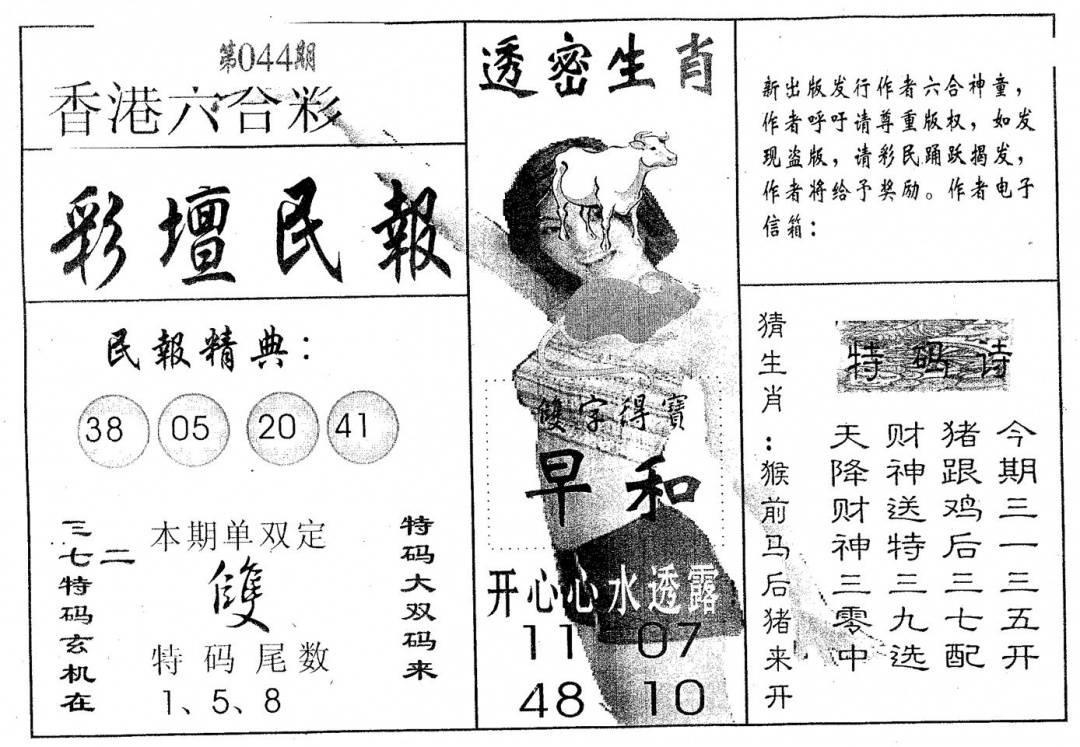 第044期
香港六合彩
彩壇民報
民報精典：
38 05 20 41
三七特码玄机在
二
本期单双定
雙
特码尾数
1、5、8
特码大双码来
透密生肖
雙字得寶
早和
开心心水透露
11 07
48 10
新出版发行作者六合神童，
作者呼吁请尊重版权，如发
现盗版，请彩民踊跃揭发，
作者将给予奖励。作者电子
信箱：
猜生肖：猴前马后猪来开
特码诗
今期三一三五开
猪跟鸡后三七配
财神送特三九选
天降财神三零中